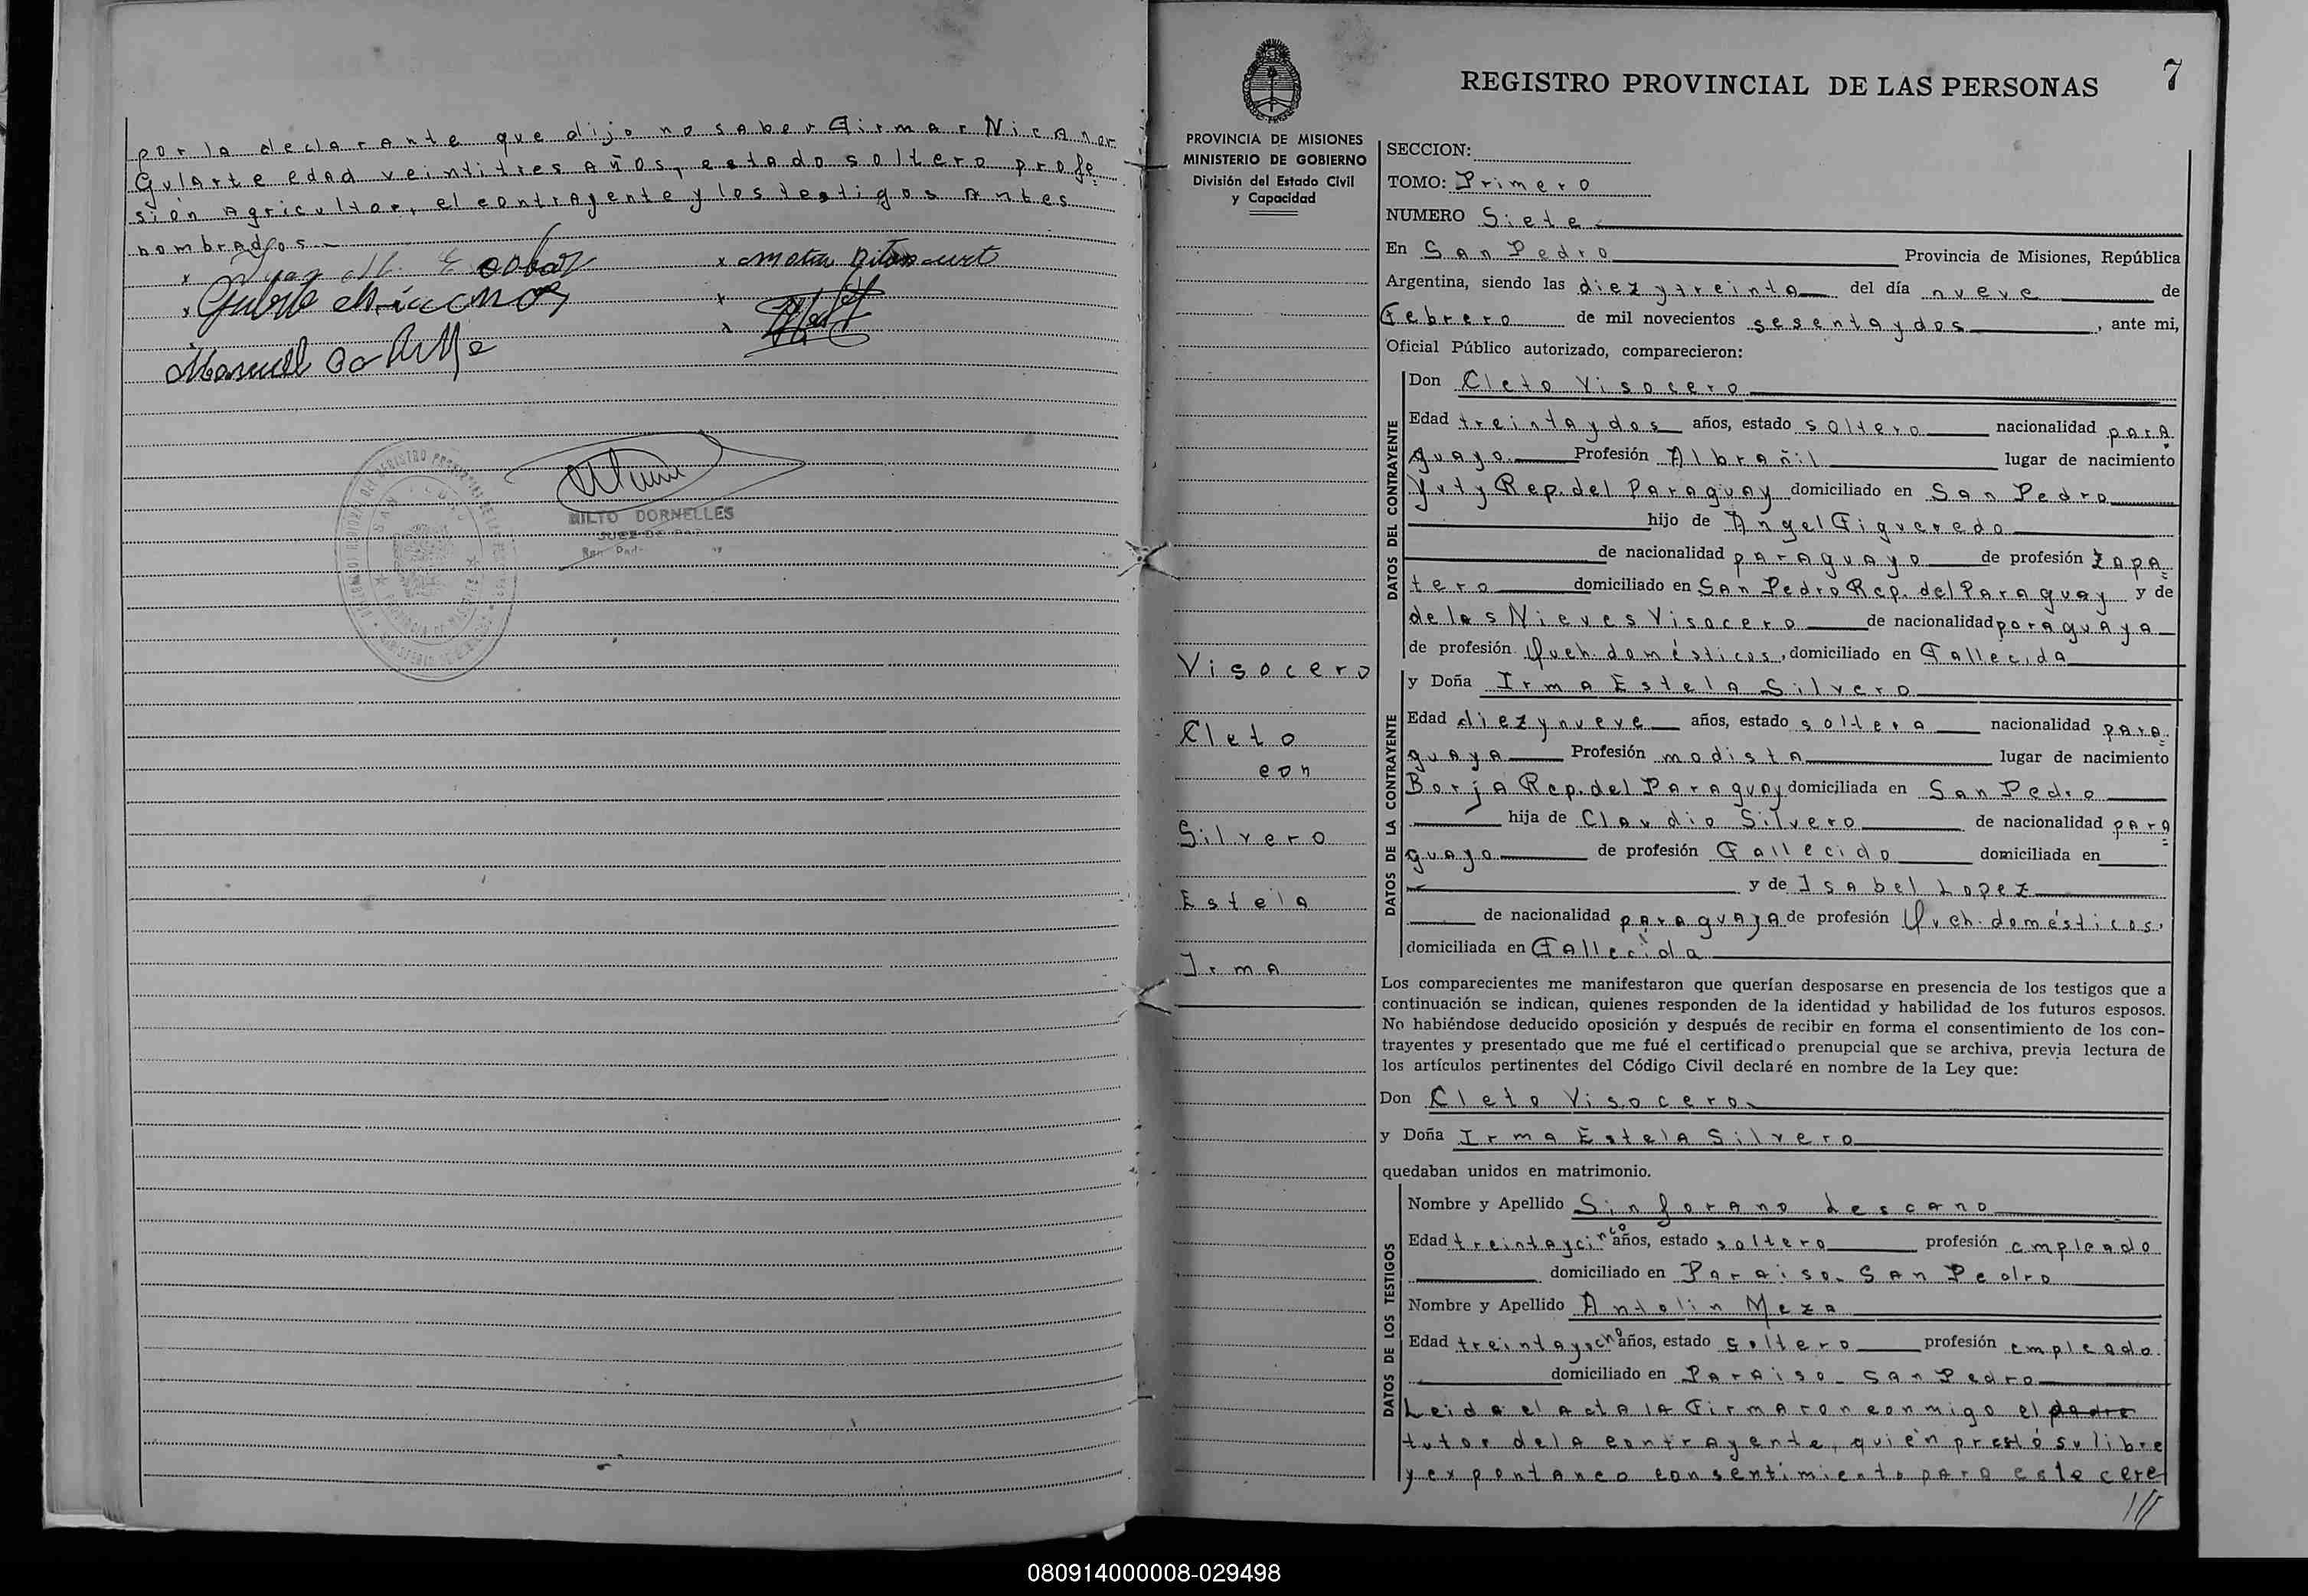 por la declarante que dijo no saber Firmar Nicanor
Gularte edad veintitres años, estado soltero profe=
sión agricultor, el contrayente y los testigos antes
nombrados.-
MILTO DORNELLES
JUEZ DE PAZ
7
REGISTRO PROVINCIAL DE LAS PERSONAS
PROVINCIA DE MISIONES
MINISTERIO DE GOBIERNO
División del Estado Civil
y Capacidad
Visocero
Cleto
con
Silvero
Estela
Irma
SECCION:
TOMO: Primero
NUMERO Siete
En San Pedro Provincia de Misiones, República
Argentina, siendo las diez y treinta del día nueve de
Febrero de mil novecientos sesenta y dos, ante mi,
Oficial Público autorizado, comparecieron:
DATOS DEL CONTRAYENTE
Don Cleto Visocero
Edad treinta y dos años, estado soltero nacionalidad para
guayo Profesión Albrañil lugar de nacimiento
Yuty Rep. del Paraguay domiciliado en San Pedro
hijo de Angel Figueredo
de nacionalidad paraguayo de profesión zapa=
tero domiciliado en San Pedro Rep. del Paraguay y de
de las Nieves Visocero de nacionalidad paraguaya
de profesión Queh. domésticos, domiciliado en Fallecida
DATOS DE LA CONTRAYENTE
y Doña Irma Estela Silvero
Edad diez y nueve años, estado soltera nacionalidad para=
guaya Profesión modista lugar de nacimiento
Borja Rep. del Paraguay domiciliada en San Pedro
hija de Claudio Silvero de nacionalidad para=
guayo de profesión Fallecido domiciliada en
y de Isabel Lopez
de nacionalidad paraguaya de profesión Queh. domésticos,
domiciliada en Fallecida
Los comparecientes me manifestaron que querían desposarse en presencia de los testigos que a
continuación se indican, quienes responden de la identidad y habilidad de los futuros esposos.
No habiéndose deducido oposición y después de recibir en forma el consentimiento de los con-
trayentes y presentado que me fué el certificado prenupcial que se archiva, previa lectura de
los artículos pertinentes del Código Civil declaré en nombre de la Ley que:
Don Cleto Visocero
y Doña Irma Estela Silvero
quedaban unidos en matrimonio.
DATOS DE LOS TESTIGOS
Nombre y Apellido Sinforano Lescano
Edad treinta y cinco años, estado soltero profesión empleado
domiciliado en Paraiso- San Pedro
Nombre y Apellido Antolin Meza
Edad treinta y ocho años, estado soltero profesión empleado.
domiciliado en Paraiso- San Pedro
Leida el acta la Firmaron conmigo el padre
tutor de la contrayente, quién prestó su libre
y expontaneo consentimiento para este cere
///
080914000008-029498